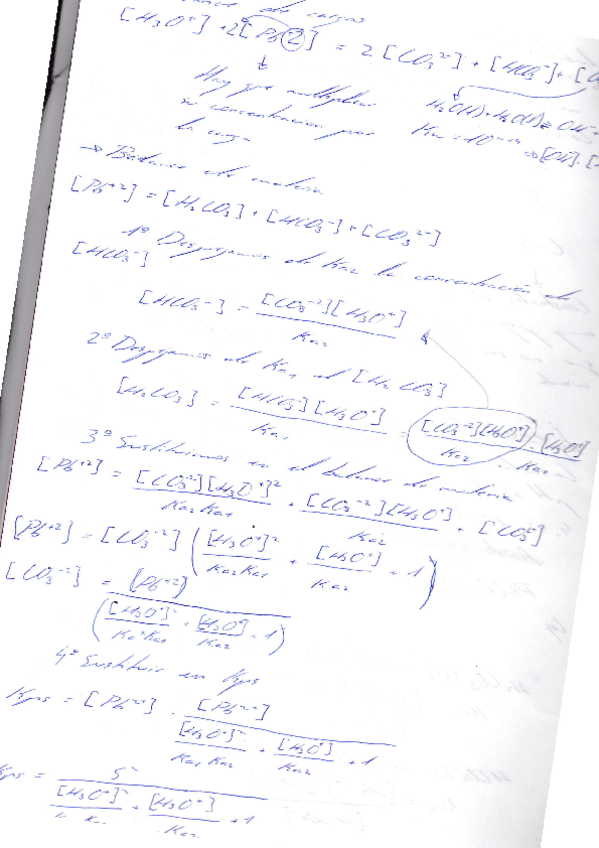 de cargas
[H₃O⁺] + 2[Pb²] = 2[CO₃²⁻] + [HCO₃⁻] + [O
Hay que multiplicar
su concentración por
la carga
H₂O(l) + H₂O(l) ⇌ OH⁻
Kw = 10⁻¹⁴ ⇒ [OH]·[
→ Balance de materia
[Pb⁺²] = [H₂CO₃] + [HCO₃⁻] + [CO₃²⁻]
1º Despejamos de Ka₂ la concentración de
[HCO₃⁻]
[HCO₃⁻] = [CO₃⁻²][H₃O⁺] / Ka₂
2º Despejamos de Ka₁ el [H₂CO₃]
[H₂CO₃] = [HCO₃⁻][H₃O⁺] / Ka₁ = [CO₃⁻²][H₃O⁺]·[H₃O⁺] / Ka₂ ·
3º Sustituimos en el balance de materia
[Pb⁺²] = [CO₃⁻²][H₃O⁺]² / Ka₂Ka₁ + [CO₃⁻²][H₃O⁺] / Ka₂ + [CO₃²⁻]
[Pb⁺²] = [CO₃⁻²] ([H₃O⁺]² / Ka₂Ka₁ + [H₃O⁺] / Ka₂ + 1)
[CO₃⁻²] = [Pb⁺²] / ([H₃O⁺]² / Ka₂Ka₁ + [H₃O⁺] / Ka₂ + 1)
4º Sustituir en Kps
Kps = [Pb²⁺] · [Pb²⁺] / [H₃O⁺]² / Ka₁Ka₂ + [H₃O⁺] / Ka₂ + 1
Kps = S² / [H₃O⁺]² / Ka₁ Ka₂ + [H₃O⁺] / Ka₂ + 1